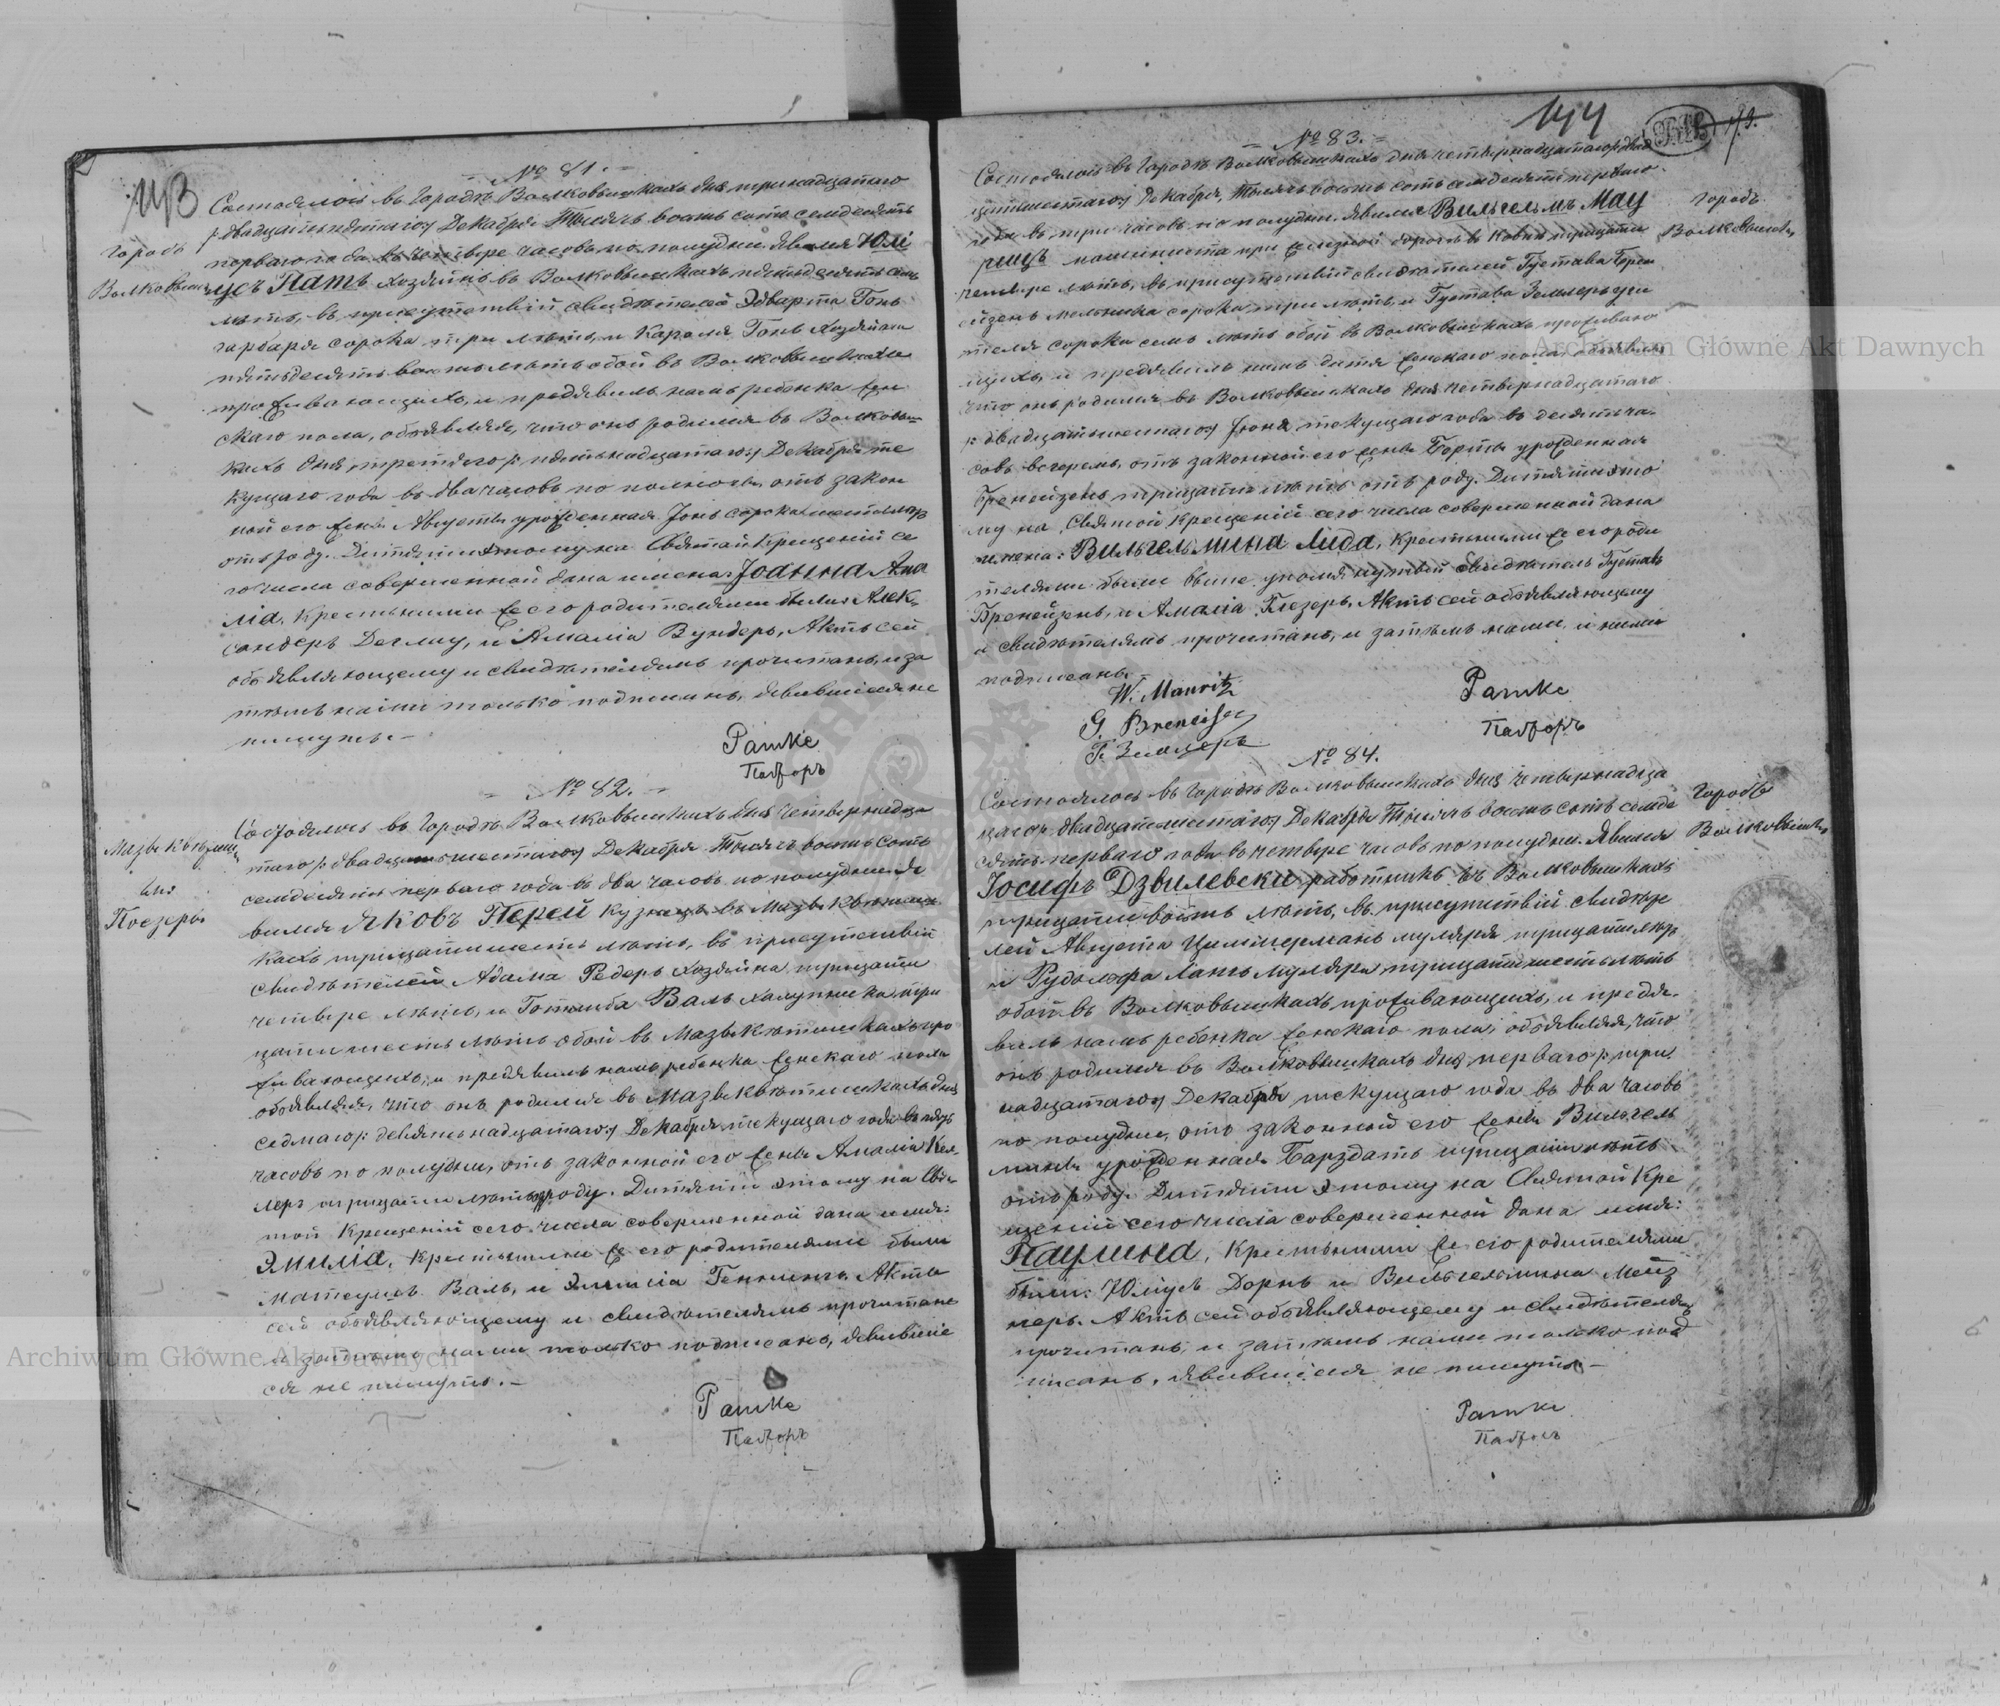 143
№ 81.
Городъ
Волковышки
Состоялось въ Городѣ Волковышкахъ дня тринадцатаго
/: двадцать пятаго:/ Декабря Тысяча восемь сотъ семдесятъ
перваго года въ четвере часовъ по полудни. Явился Юлі
усъ Патъ хозяинъ въ Волковышкахъ пятьдесятъ семь
лѣтъ, въ присутствіи свидѣтелей Эдварта Гонъ
гарбаря сорокъ три лѣтъ, и Кароля Гонъ Хозяина
пятьдесятъ восемь лѣтъ обой въ Волковышкахъ
проживающихъ, и предявилъ намъ ребенка жен
скаго пола, объявляя, что онъ родился въ Волковыш
кахъ дня третяго /: пятьнадцатаго:/ Декабря те
кущаго года въ два часовъ по полночи, отъ закон
ной его жены Августы урожденная Іонъ сорокъ шесть лѣтъ
отъ роду. Дитяти этому на Святой Крещеній се
го числа совершенной дана имена: Іоанна Ама
лія, Крестными же его родителями были: Алек-
сандеръ Деглау, и Амалія Вундеръ, Актъ сей
объявляющему и свидѣтелямъ прочитанъ, и за
тѣмъ нами только подписанъ, явившіеся не
пишутъ. —
Ратке
Пасторъ
№ 82.
Мазывквютыш
ки
Поезеры
Состоялось въ Городѣ Волковышкахъ дня четвернадца
таго /: двадцать шестаго:/ Декабря Тысяча восемь сотъ
семдесятъ перваго года въ два часовъ по полудни. Я
вился Яковъ Перей Кузнецъ въ Мазывквютыш
кахъ тридцати шесть лѣтъ, въ присутствіи
свидѣтелей Адама Редеръ Хозяина тридцати
четвере лѣтъ, и Готлиба Валь халупника три
дцати шесть лѣтъ обой въ Мазывквютышкахъ про
живающихъ, и предявилъ намъ ребенка женскаго пола
объявляя, что онъ родился въ Мазывквютышкахъ дня
седмаго /: девятьнадцатаго:/ Декабря текущаго года въ пять
часовъ по полудни, отъ законной его жены Амалія Кел-
леръ тридцати лѣтъ отъ роду. Дитяти этому на Свя-
той Крещеній сего числа совершенной дана имя:
Эмилія, Крестными же его родителями были
Матеушъ Валь, и Эмилія Геннингъ. Актъ
сей объявляющему и свидѣтелямъ прочитанъ
и затѣмъ нами только подписанъ, явившіе
ся не пишутъ. —
Ратке
Пасторъ
144
№ 83.
Городъ
Волковышки
Состоялось въ Городѣ Волковышкахъ дня четвернадцатаго /: двад
цать шестаго:/ Декабря, Тысяча восемь сотъ семдесятъ перваго
года въ три часовъ по полудни. Явился Вильгельмъ Мау
рицъ машиниста при желѣзной дорогѣ въ Ковнѣ тридцати
четвере лѣтъ, въ присутствіи свидѣтелей Густава Брен
ейзенъ мельника сорокъ три лѣтъ, и Густава Землеръ учи
теля сорокъ семь лѣтъ обой въ Волковышкахъ проживаю
щихъ, и предявилъ намъ дитя женскаго пола, объявляя
что онъ родился въ Волковышкахъ дня четвернадцатаго
/: двадцать шестаго:/ Іюня текущаго года въ десять ча-
совъ вечеромъ, отъ законной его жены Берты урожденная
Бренейзенъ тридцати лѣтъ отъ роду. Дитяти это
му на Святой Крещеній сего числа совершенной дана
имена: Вильгельмина Лида, Крестными же его роди
телями были выше упомянутый свидѣтель Густавъ
Бренейзенъ, и Амалія Глезеръ, Актъ сей объявляющему
и свидѣтелямъ прочитанъ, и затѣмъ нами, и ними
подписанъ.
W. Mauritz
G. Breneisen
Г. Землеръ
Ратке
Пасторъ
№ 84.
Городъ
Волковышки
Состоялось въ Городѣ Волковышкахъ дня четвернадца
таго /: двадцать шестаго:/ Декабря Тысяча восемь сотъ семде
сятъ перваго года въ четвере часовъ по полудни. Явился
Іосифъ Дзвилевски работникъ въ Волковышкахъ
тридцати восемь лѣтъ, въ присутствіи свидѣте
лей Августа Циммерманъ муляря тридцати лѣтъ
и Рудольфа Лангъ Муляря тридцати шесть лѣтъ
обой въ Волковышкахъ проживающихъ, и предя-
вилъ намъ ребенка женскаго пола, объявляя, что
онъ родился въ Волковышкахъ дня перваго /: три
надцатаго:/ Декабря текущаго года въ два часовъ
по полудни, отъ законной его жены Вильгель
мины урожденная Барздатъ тридцати лѣтъ
отъ роду. Дитяти этому на Святой Кре
щеній сего числа совершенной дана имя:
Паулина, Крестными же его родителями
были: Юліусъ Дорнъ и Вильгельмина Мейз
неръ. Актъ сей объявляющему и свидѣтелямъ
прочитанъ, и затѣмъ нами только под
писанъ, явившіеся не пишутъ. —
Ратке
Пасторъ
Archiwum Główne Akt Dawnych
Archiwum Główne Akt Dawnych